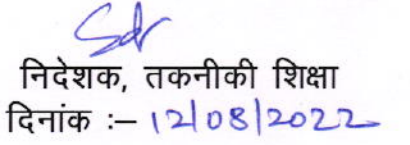 Sdr
निदेशक, तकनीकी शिक्षा
दिनांक :– 12/08/2022